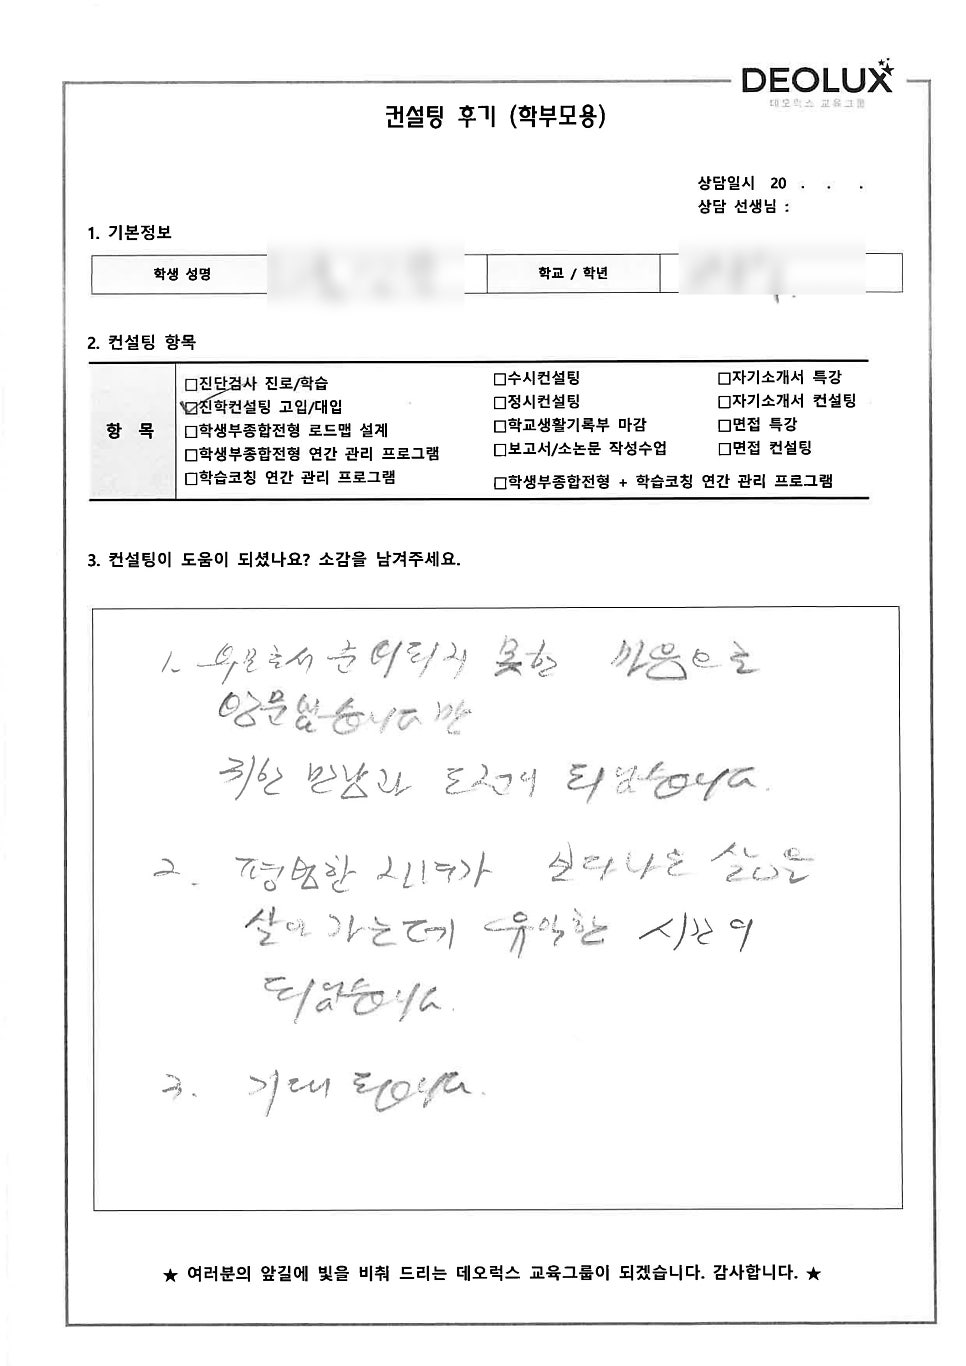 DEOLUX
데오럭스 교육그룹
컨설팅 후기 (학부모용)
상담일시 20 . . .
상담 선생님 :
1. 기본정보
학생 성명
학교 / 학년
2. 컨설팅 항목
항 목
□진단검사 진로/학습
□진학컨설팅 고입/대입
□학생부종합전형 로드맵 설계
□학생부종합전형 연간 관리 프로그램
□학습코칭 연간 관리 프로그램
□수시컨설팅
□정시컨설팅
□학교생활기록부 마감
□보고서/소논문 작성수업
□학생부종합전형 + 학습코칭 연간 관리 프로그램
□자기소개서 특강
□자기소개서 컨설팅
□면접 특강
□면접 컨설팅
3. 컨설팅이 도움이 되셨나요? 소감을 남겨주세요.
1. 부모로서 준비되지 못한 마음으로
방문했습니다만
귀한 만남과 도전이 되었습니다.
2. 평범한 소녀가 신다나는 삶을
살아가는데 유익한 시간이
되었습니다.
3. 기대 됩니다.
★ 여러분의 앞길에 빛을 비춰 드리는 데오럭스 교육그룹이 되겠습니다. 감사합니다. ★